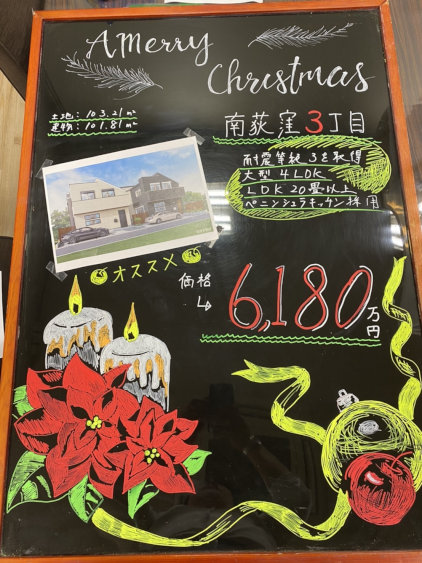 A Merry
Christmas
土地：103.21㎡
建物：101.81㎡
南荻窪3丁目
耐震等級 3を取得
大型 4LDK
LDK 20畳以上
ペニンシュラキッチン採用
オススメ
価格
↳ 6,180万円